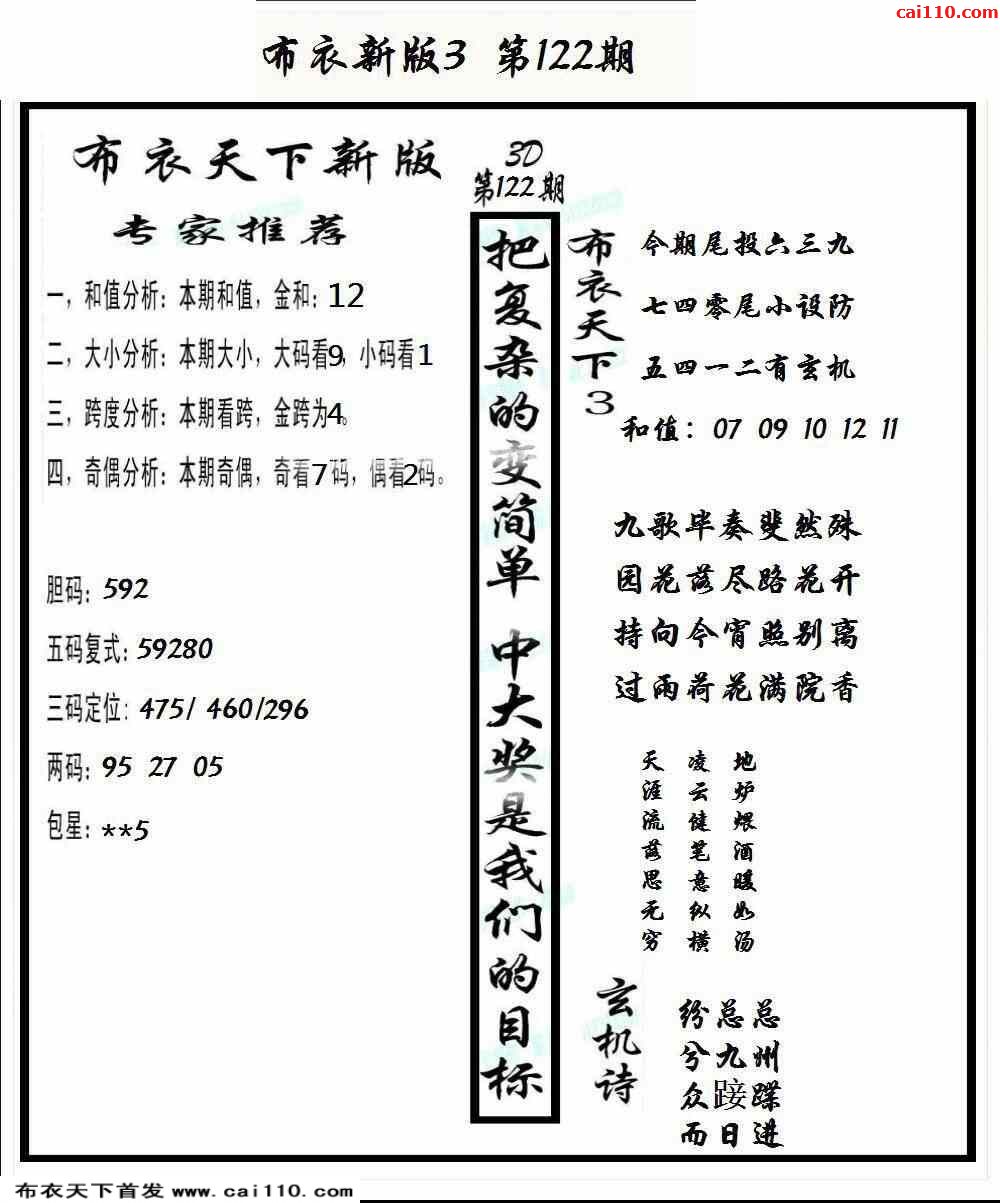 cai110.com
布衣新版3 第122期
布衣天下新版
专家推荐
一，和值分析：本期和值，金和：12
二，大小分析：本期大小，大码看9，小码看1
三，跨度分析：本期看跨，金跨为4。
四，奇偶分析：本期奇偶，奇看7码，偶看2码。
胆码：592
五码复式：59280
三码定位：475/ 460/296
两码：95 27 05
包星：**5
3D
第122期
把复杂的变简单 中大奖是我们的目标
布衣天下3
今期尾投六三九
七四零尾小设防
五四一二有玄机
和值：07 09 10 12 11
九歌毕奏斐然殊
园花落尽路花开
持向今宵照别离
过雨荷花满院香
地炉煨酒暖如汤
凌云健笔意纵横
天涯流落思无穷
玄机诗
纷总总
兮九州
众踥蹀
而日进
布衣天下首发 www.cai110.com